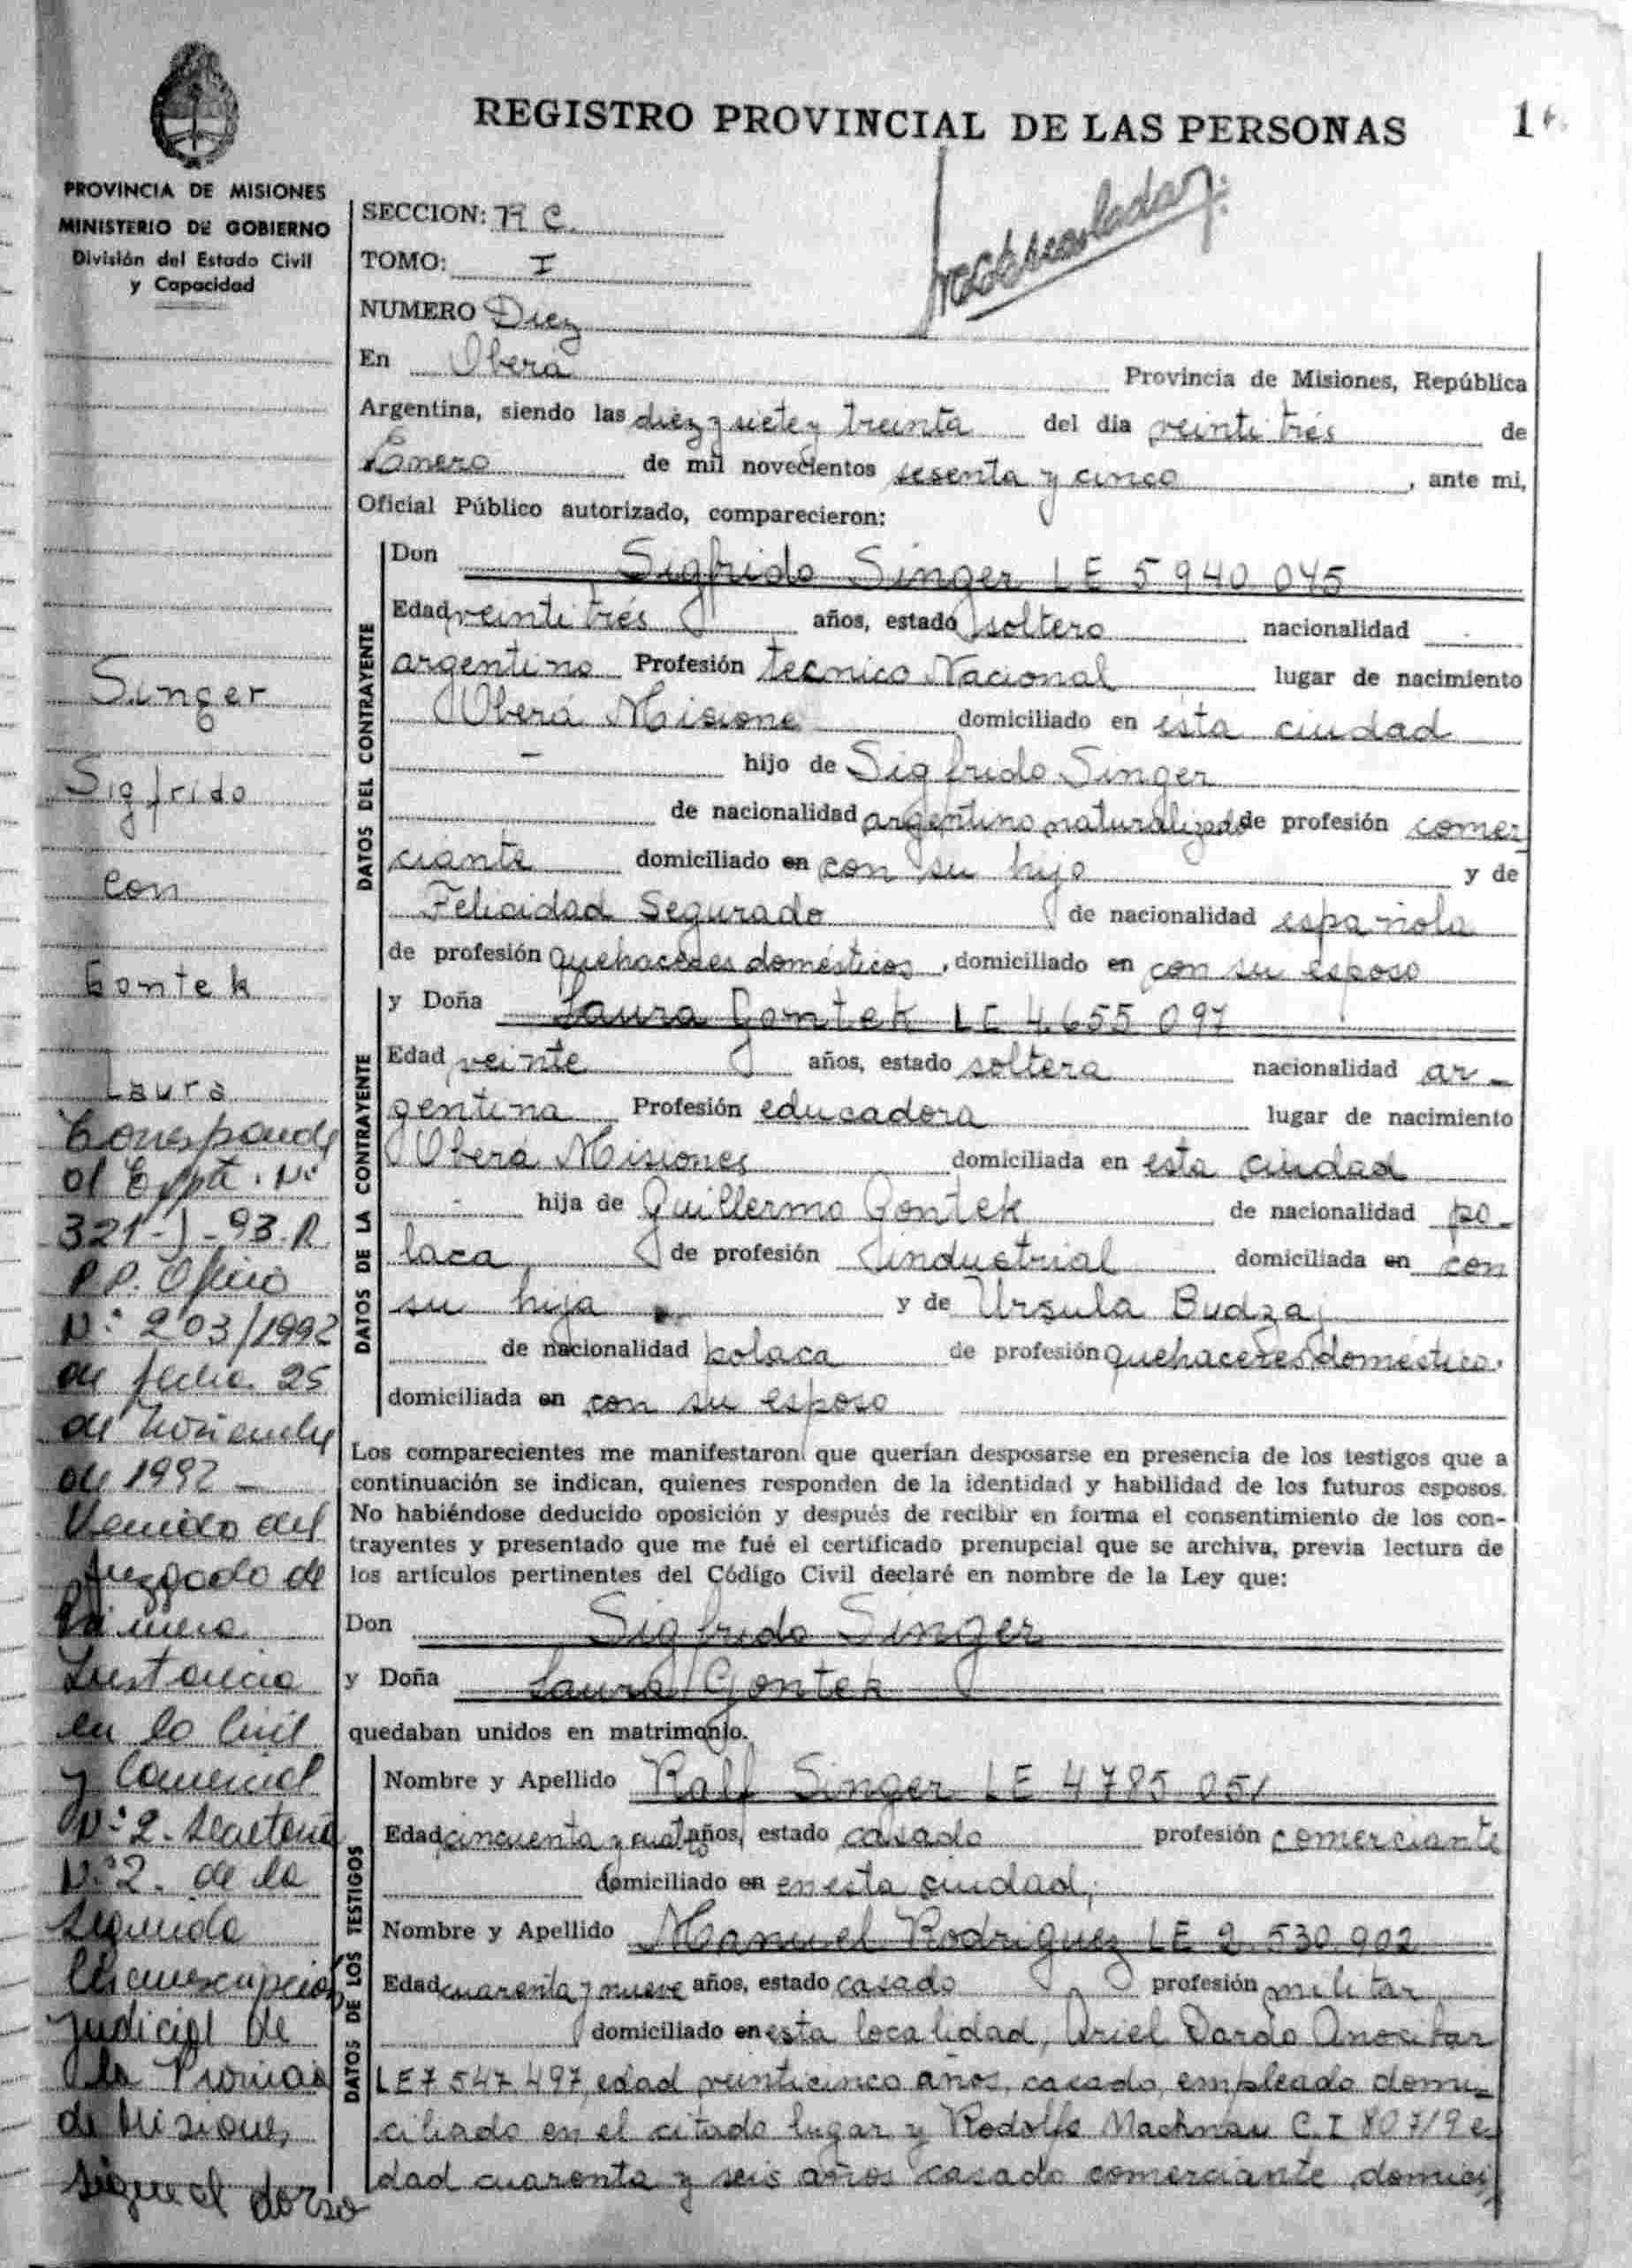 REGISTRO PROVINCIAL DE LAS PERSONAS
PROVINCIA DE MISIONES
MINISTERIO DE GOBIERNO
División del Estado Civil
y Capacidad
Singer
Sigfrido
con
Gontek
Laura
Corresponde
al Expte. Nº
321-J-93-R
P.P. Oficio
Nº 203/1992
de fecha 25
de Noviembre
de 1992 —
Venido del
Juzgado de
Primera
Instancia
en lo Civil
y Comercial
Nº 2. Secretaria
Nº 2. de la
segunda
Circunscripcion
judicial de
la Provincia
de Misiones,
sigue al dorso
SECCION:
TOMO: I
NUMERO Diez
En Oberá Provincia de Misiones, República
Argentina, siendo las diez y siete y treinta del día veinti trés de
Enero de mil novecientos sesenta y cinco, ante mi,
Oficial Público autorizado, comparecieron:
DATOS DEL CONTRAYENTE
Don Sigfrido Singer LE 5 940 045
Edad veinti trés años, estado soltero nacionalidad
argentino Profesión tecnico Nacional lugar de nacimiento
Oberá Misione domiciliado en esta ciudad
— hijo de Sigfrido Singer
de nacionalidad argentino naturalizado de profesión comer
ciante domiciliado en con su hijo y de
Felicidad Segurado de nacionalidad española
de profesión quehaceres domésticos, domiciliado en con su esposo
DATOS DE LA CONTRAYENTE
y Doña Laura Gontek LE 4.655 097
Edad veinte años, estado soltera nacionalidad ar-
gentina Profesión educadora lugar de nacimiento
Oberá Misiones domiciliada en esta ciudad
- hija de Guillermo Gontek de nacionalidad po-
laca de profesión industrial domiciliada en con
su hija y de Ursula Budzaj
de nacionalidad polaca de profesión quehaceres doméstico.
domiciliada en con su esposo
Los comparecientes me manifestaron que querían desposarse en presencia de los testigos que a
continuación se indican, quienes responden de la identidad y habilidad de los futuros esposos.
No habiéndose deducido oposición y después de recibir en forma el consentimiento de los con-
trayentes y presentado que me fué el certificado prenupcial que se archiva, previa lectura de
los artículos pertinentes del Código Civil declaré en nombre de la Ley que:
Don Sigfrido Singer
y Doña Laura Gontek
quedaban unidos en matrimonio.
DATOS DE LOS TESTIGOS
Nombre y Apellido Ralf Singer LE 4785 051
Edad cincuenta y cuatro años, estado casado profesión comerciante
domiciliado en en esta ciudad,
Nombre y Apellido Manuel Rodriguez LE 2.530.902
Edad cuarenta y nueve años, estado casado profesión militar
domiciliado en esta localidad, Ariel Dardo Anocibar
LE 7 547.497, edad veinticinco años, casado, empleado domi-
ciliado en el citado lugar y Rodolfo Machnau C.I 80719 e-
dad cuarenta y seis años casado comerciante domici